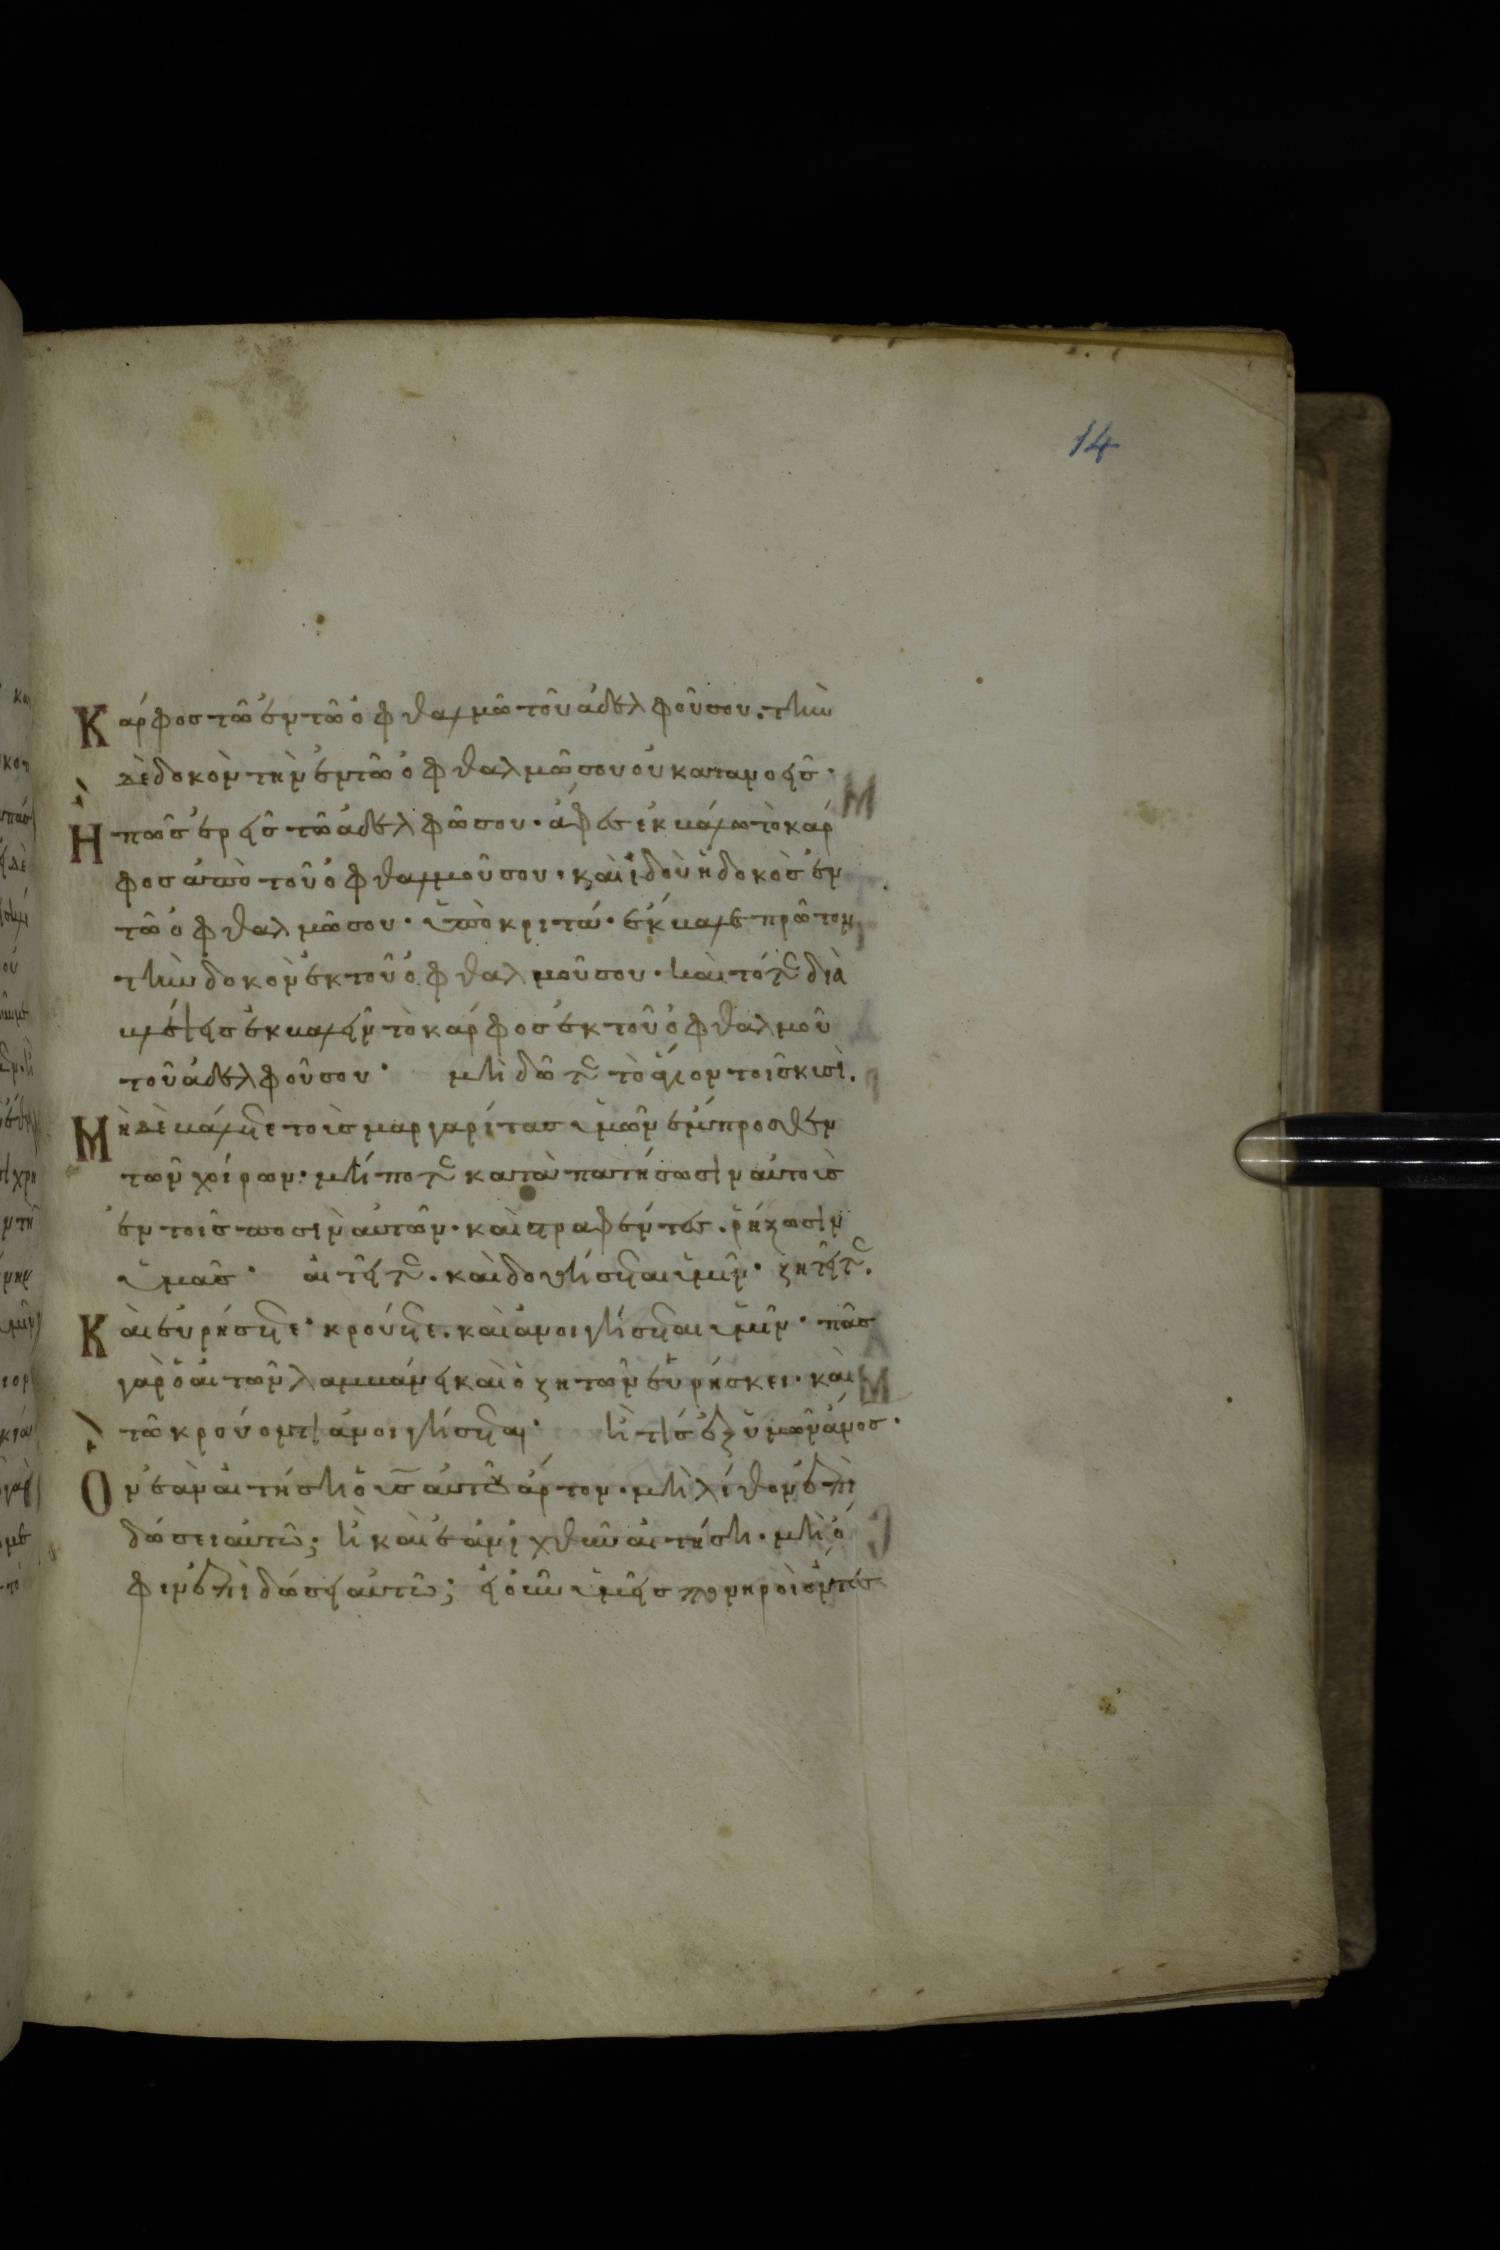 14
Κάρφος τῶ ἐν τῶ ὀφθαλμῶ τοῦ ἀδελφοῦ σου. τὴν
δὲ δοκὸν τὴν ἐν τῶ ὀφθαλμῶ σου οὐ κατανοεῖς·
Ἢ πῶς ἐρεῖς τῶ ἀδελφῶ σου· ἄφες ἐκβάλω τὸ κάρ
φος ἀπὸ τοῦ ὀφθαλμοῦ σου· καὶ ἰδοὺ ἡ δοκὸς ἐν
τῶ ὀφθαλμῶ σου· ὑποκριτά· ἔκβαλε πρῶτον
τὴν δοκὸν ἐκ τοῦ ὀφθαλμοῦ σου· καὶ τότε διὰ
βλέψεις ἐκβαλεῖν τὸ κάρφος ἐκ τοῦ ὀφθαλμοῦ
τοῦ ἀδελφοῦ σου· μὴ δῶτε τὸ ἅγιον τοῖς κυσὶ.
Μὴ δὲ βάλητε τοὺς μαργαρίτας ὑμῶν ἔμπροσθεν
τῶν χοίρων· μήποτε καταπατήσωσιν αὐτοὺς
ἐν τοῖς ποσὶν αὐτῶν· καὶ στραφέντες. ῥήξωσιν
ὑμᾶς· αἰτεῖτε. καὶ δοθήσεται ὑμῖν· ζητεῖτε.
Καὶ εὑρήσετε· κρούετε. καὶ ἀνοιγήσεται ὑμῖν· πᾶς
γὰρ ὁ αἰτῶν λαμβάνει καὶ ὁ ζητῶν εὑρήσκει· καὶ
τῶ κρούοντι ἀνοιγήσεται· ἢ τίς ἐξ ὑμῶν ἄνος·
Ὃν ἐὰν αἰτήση ὁ υς αὐτοῦ ἄρτον· μὴ λίθον ἐπι
δώσει αὐτῶ; ἢ καὶ ἐὰν ἰχθῦν αἰτήση· μὴ ὄ
φιν ἐπιδώσει αὐτῶ; εἰ οὖν ὑμεῖς πονηροὶ ὄντες